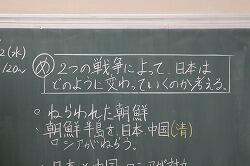 2(水)
120~
め 2つの戦争によって、日本は
どのように変わっていくのか考える。
○ねらわれた朝鮮
・朝鮮半島を、日本、中国(清)
ロシアがねらう。